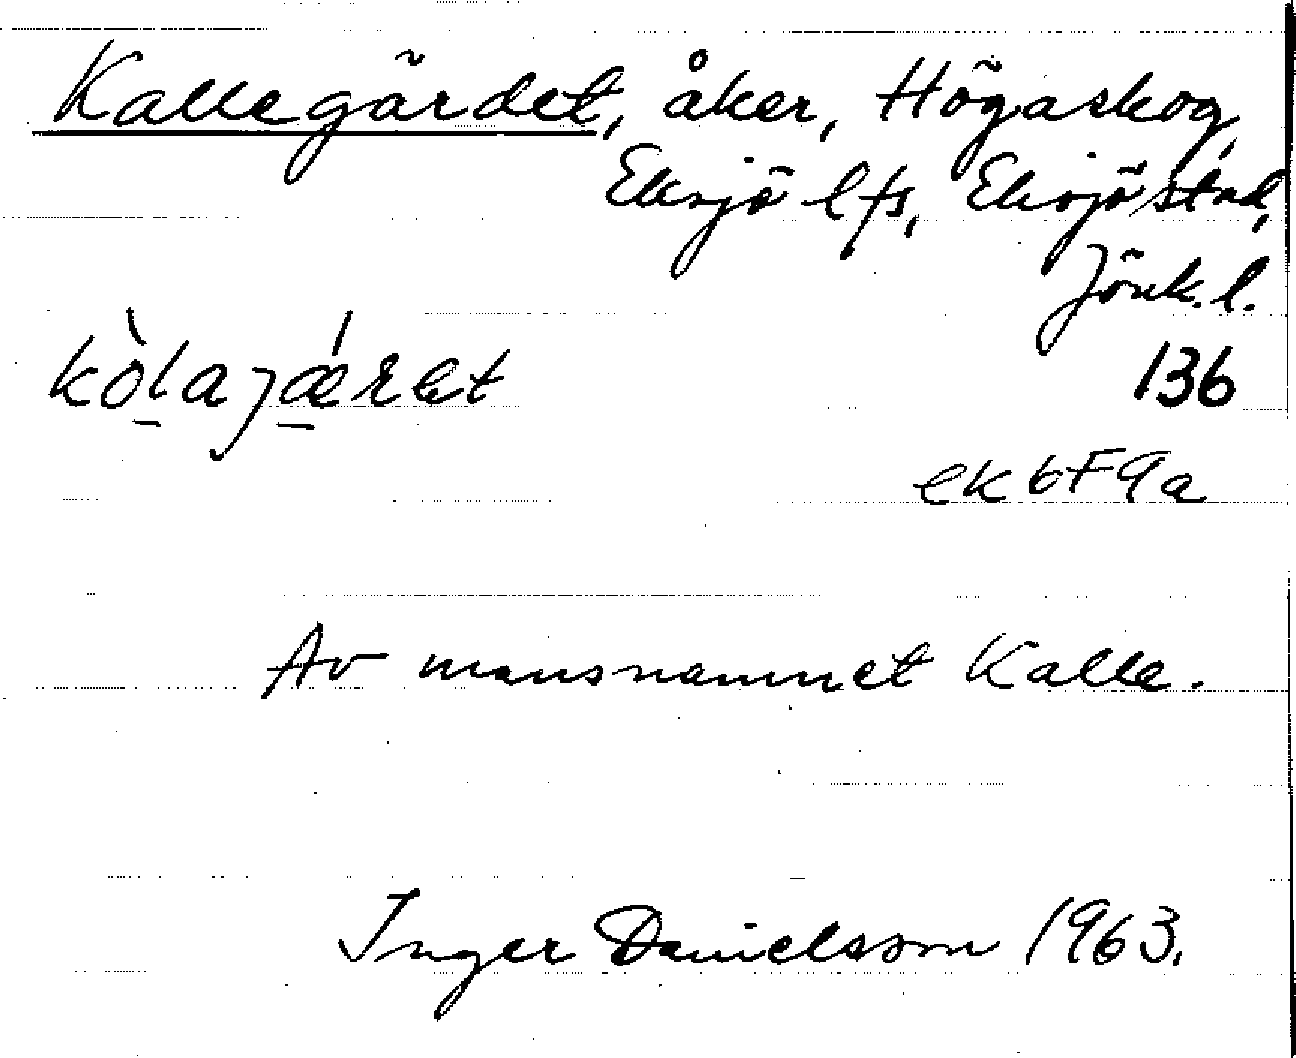 Kallegärdet, åker, Högaskog,
Eksjö lfs, Eksjö stad,
Jönk. l.
kòlajǽret
136
ek 6F9a
Av mansnamnet Kalle.
Inger Danielsson 1963.